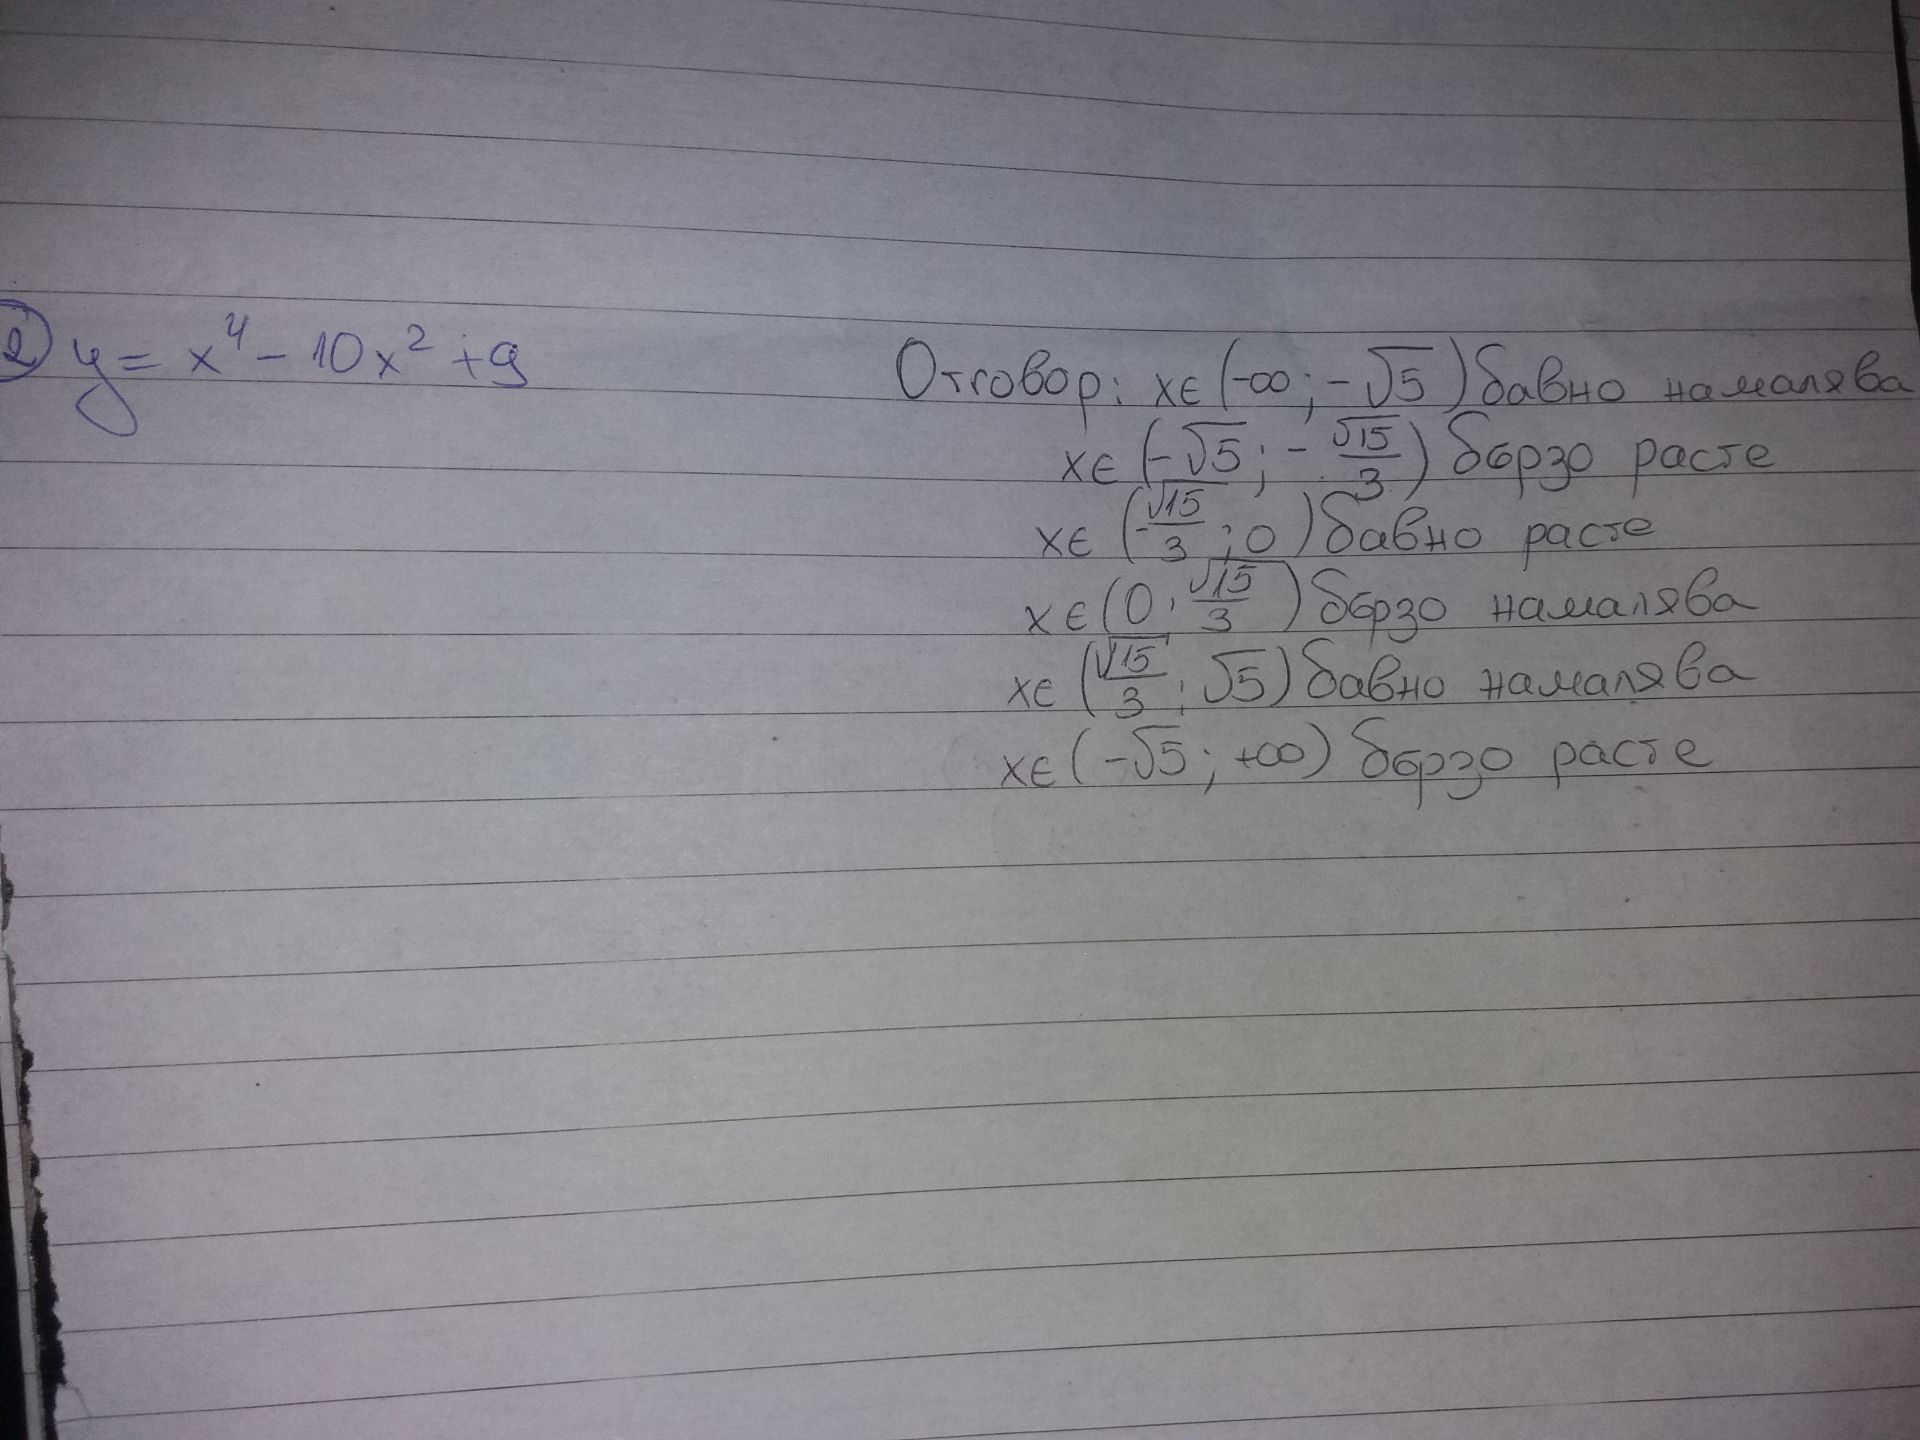 2) y = x⁴ - 10x² + 9
Отговор: x∈(-∞; -√5) бавно намалява
x∈(-√5; -√15/3) бързо расте
x∈(-√15/3; 0) бавно расте
x∈(0; √15/3) бързо намалява
x∈(√15/3; √5) бавно намалява
x∈(-√5; +∞) бързо расте